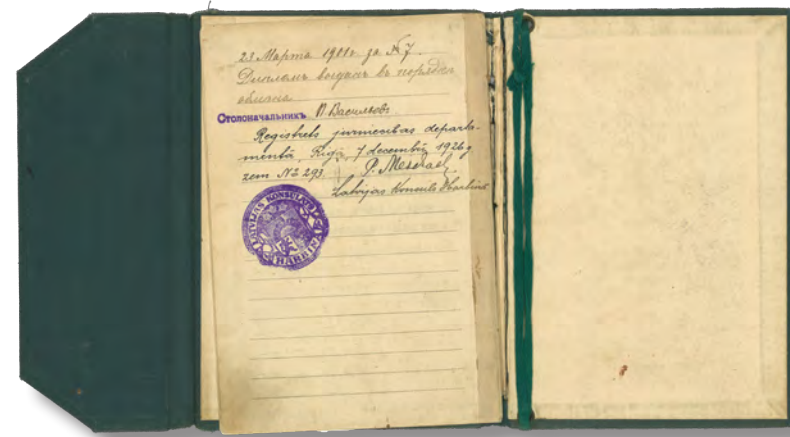 23 Марта 1901г за №7.
Дипломъ выданъ въ порядкѣ
обмѣна
Столоначальникъ П. Васильевъ
Registrets jurniecibas departa-
mentā, Rīgā, 7 decembrī 1926 g.
zem № 293.
Latvijas Konsuls Harbinā
LATVIJAS KONSULATS
HARBINĀ